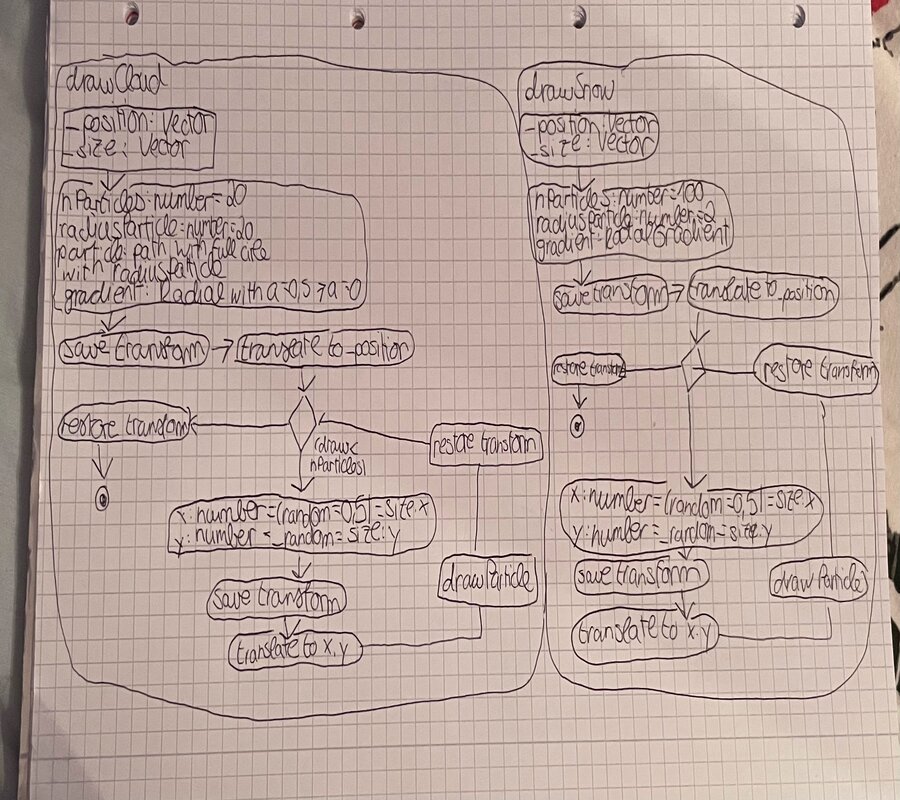 drawCloud
-position: Vector
-size: Vector
nParticles: number = 20
radiusParticle: number = 20
particle: path with full arc
with radiusParticle
gradient: Radial with a=0,5 → a=0
save transform → translate to _position
restore transform
[draw<
nParticles]
restore transform
x: number = (random = 0,5) = size.x
y: number = _random = size.y
save transform
drawParticle
translate to x, y
drawSnow
-position: Vector
-size: Vector
nParticles: number = 100
radiusParticle: number = 2
gradient: RadialGradient
save transform → translate to _position
restore transform
restore transform
x: number = (random = 0,5) = size.x
y: number = _random = size.y
save transform
drawParticle
translate to x, y